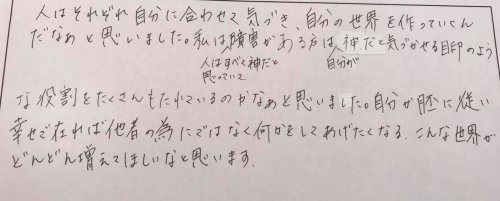 人はそれぞれ自分に合わせて気づき、自分の世界を作っていくん
だなぁと思いました。私は障害がある方は神だと気づかせる目印のよう
人はすべて神だと
思っていて
自分が
な役割をたくさんもたれているのかなぁと思いました。自分が
に従い
幸せで在れば他者の為にではなく何かをしてあげたくなる。こんな世界が
どんどん増えてほしいなと思います。